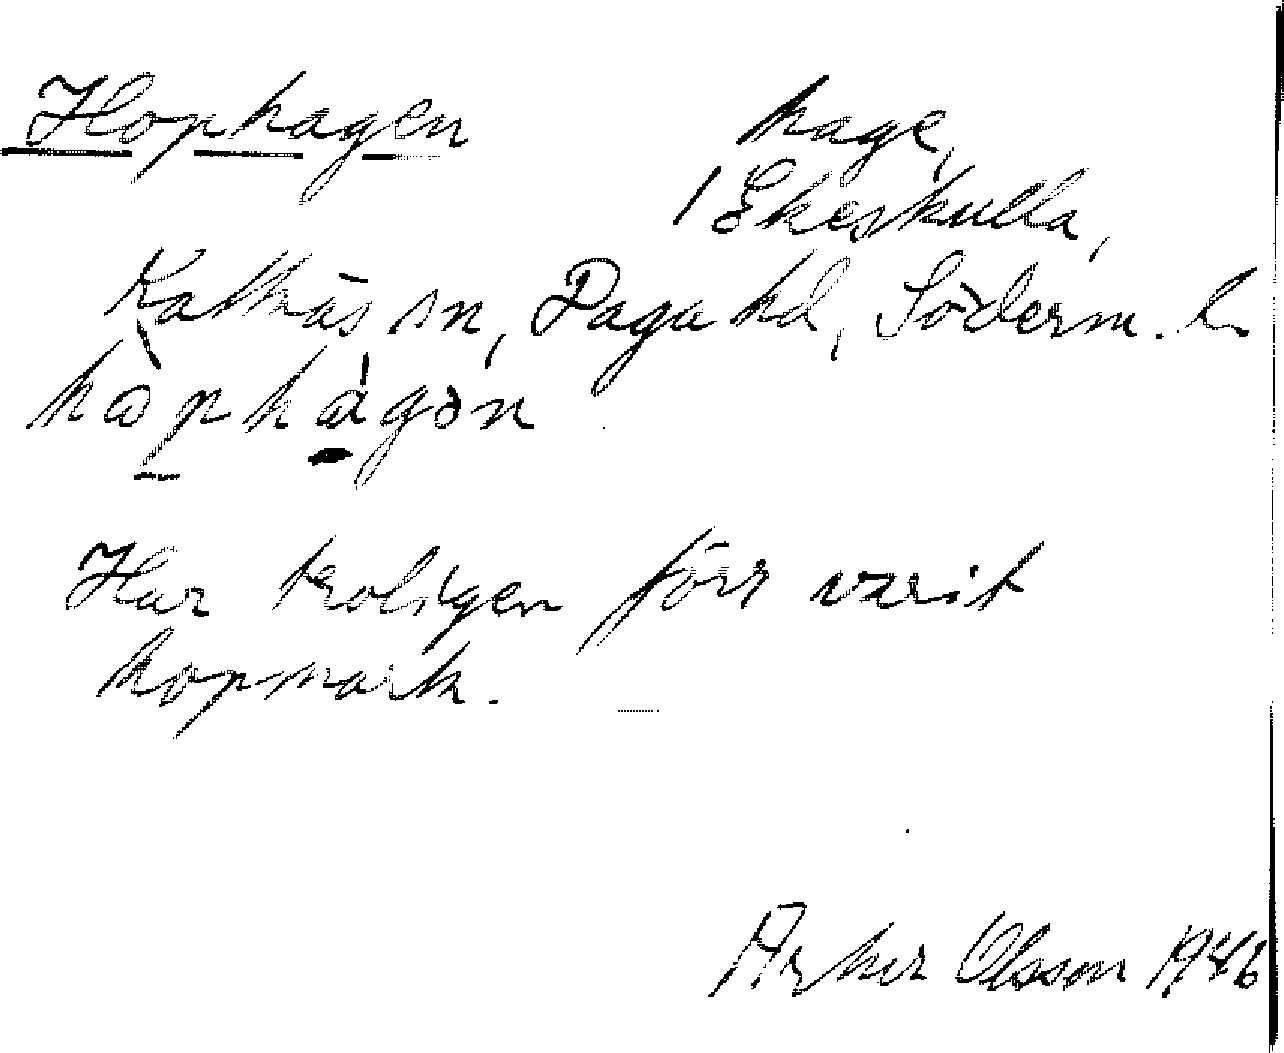 Hophagen hage,
/ Ekeskulla,
Kattnäs sn, Daga hd, Söderm. l.
hòphágən
Har troligen förr varit
hopmark.
Olsson 1946